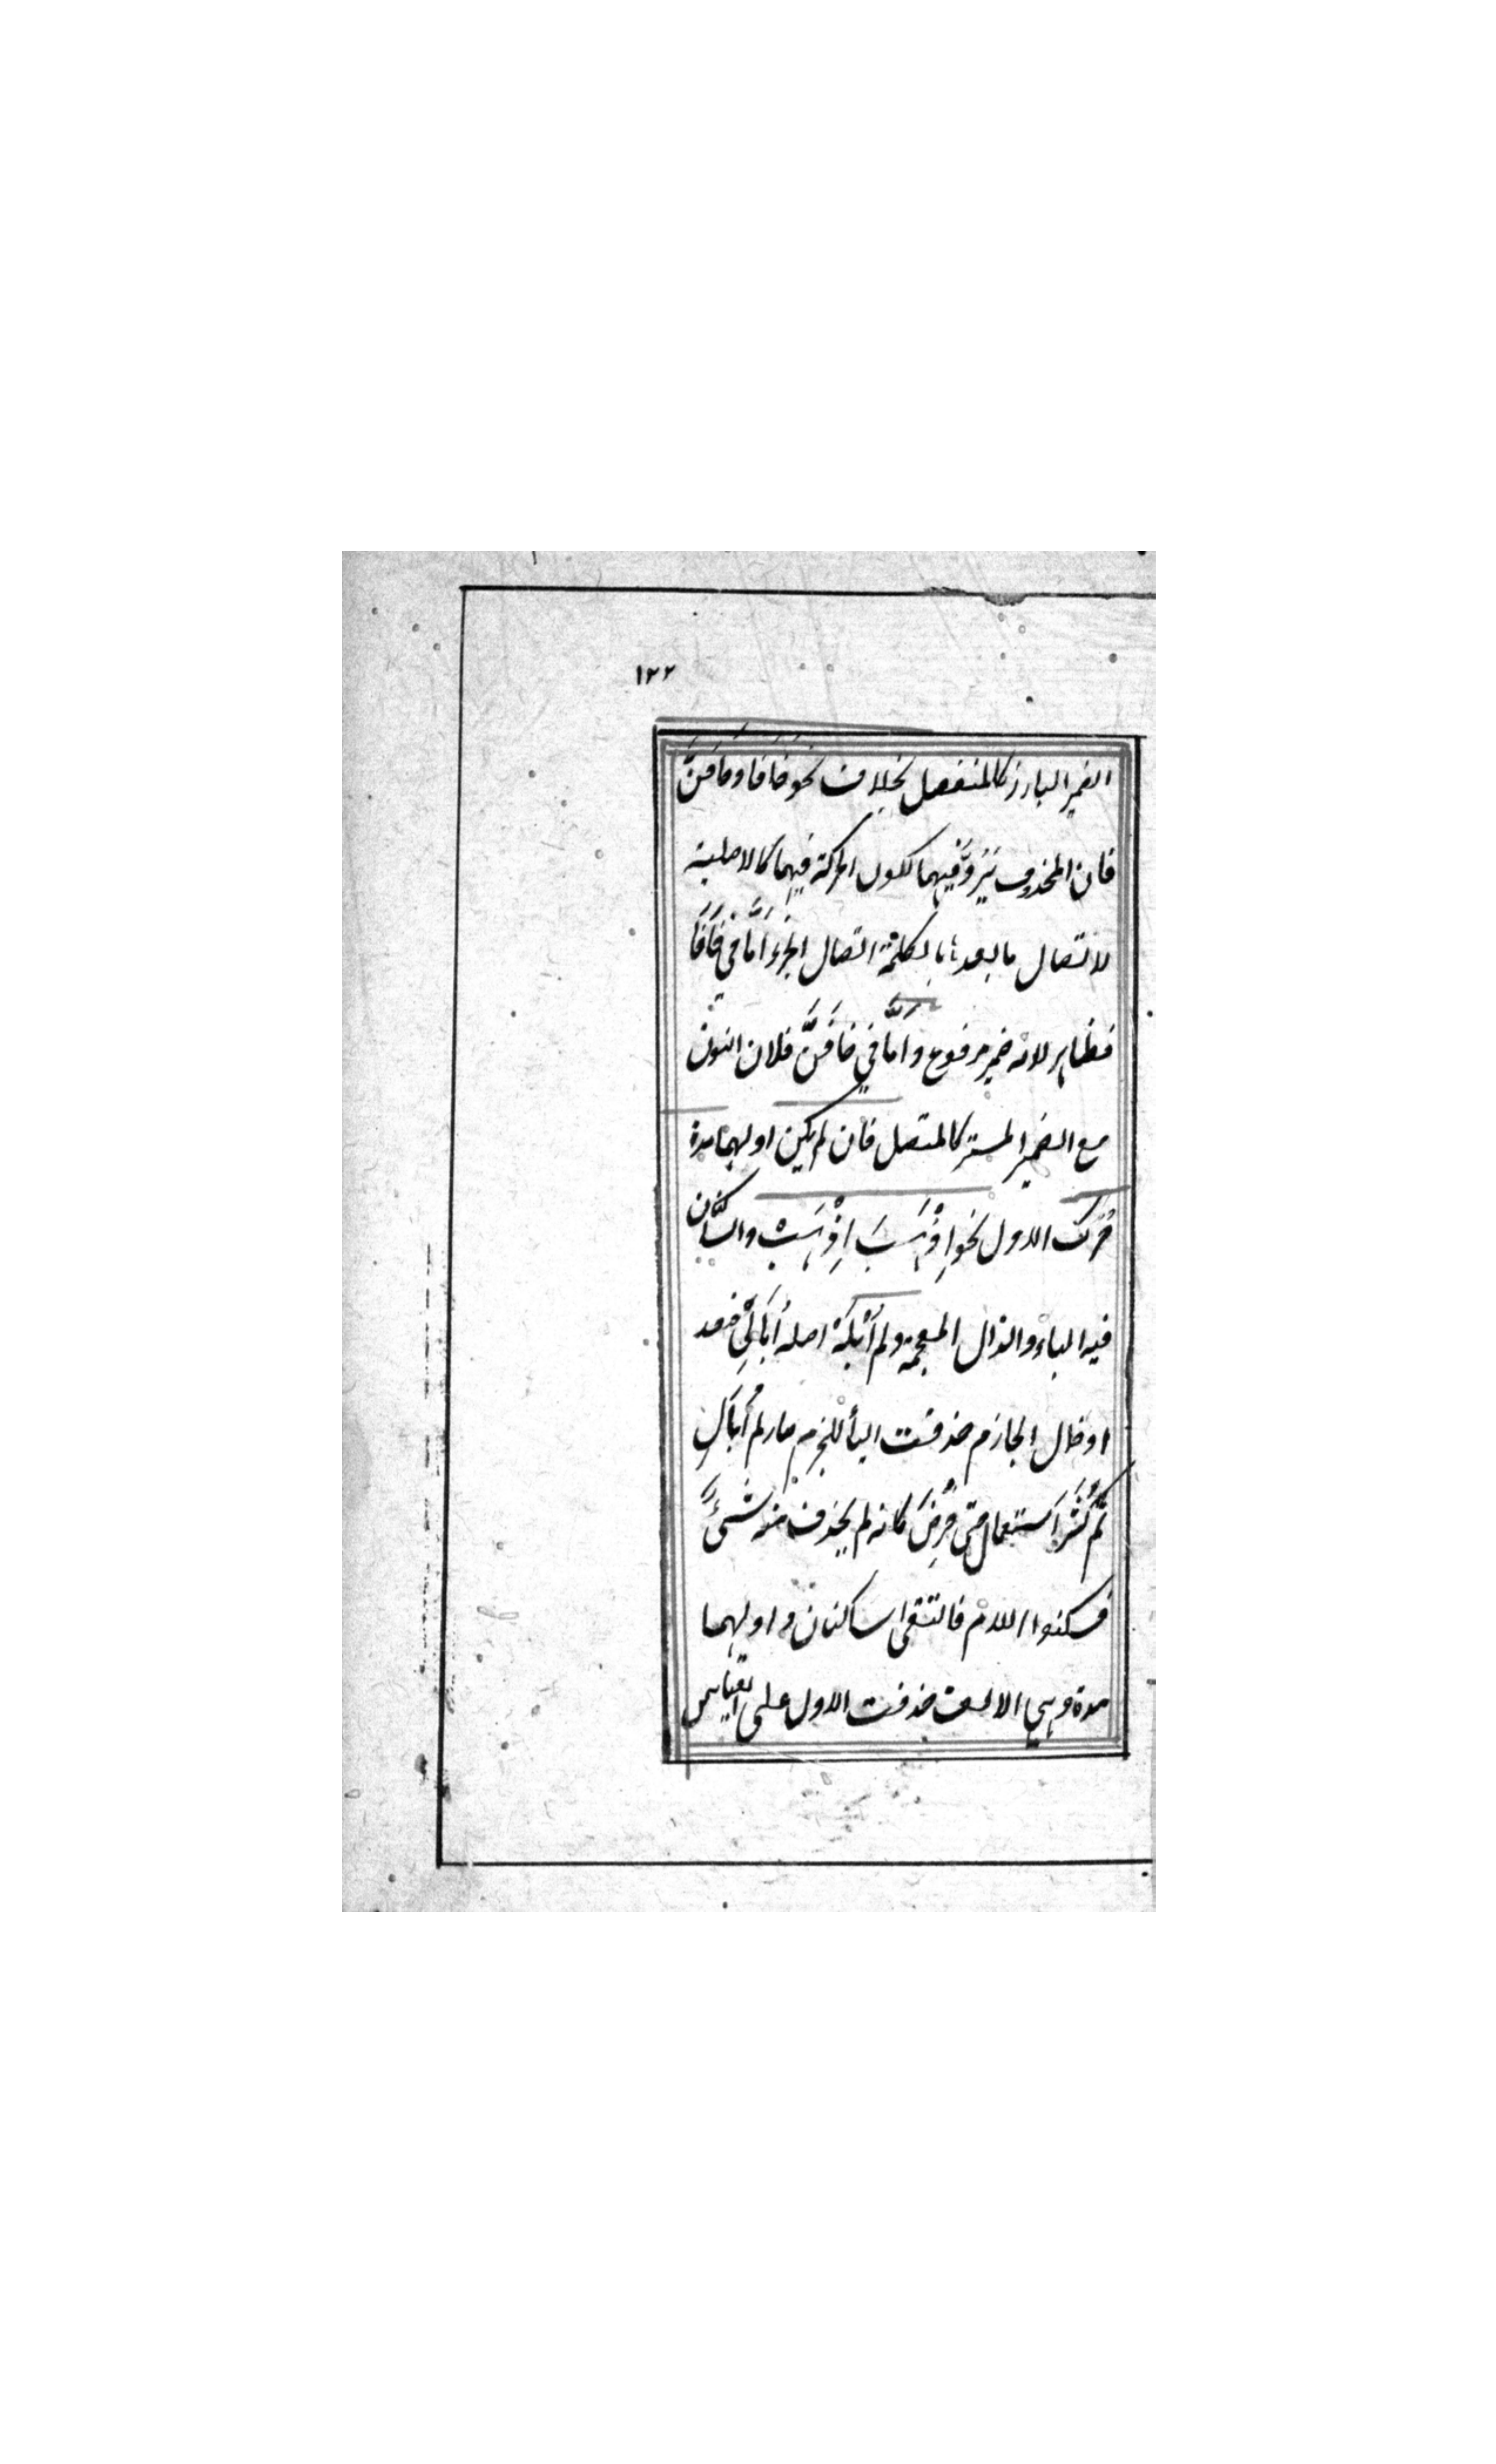 ١٢٢
الضمير البارز كالمنفصل بخلاف نحو خَافَا وخَافَنَّ
فان المحذوف يُرَدُّ فيهما لكون الحركة فيهما كالاصلية
لاتصال ما بعدها بالكلمة اتصال الجزء اَمَّا في خَافَا
فظاهر لانه ضمير مرفوع واَمَّا في خَافَنَّ فلان النون
مع الضمير المستتر كالمتصل فان لم يكن اولهما مدة
حُرِّك الاول نحو اِذْهَبَ اِذْهَبْ والساكنان
فيه الباء والذال المعجمة ولم اُبَلِهْ اصله اُبَالِي فبعد
ادخال الجازم حذفت الياء للجزم صار لم اُبَالِ
ثُمَّ كَثُرَ استعمال حتى فُرِضَ كانه لم يحذف منه شَيْءٌ
فسكنوا اللام فالتقى ساكنان واولهما
مدة وهي الالف حذفت الاول على القياس